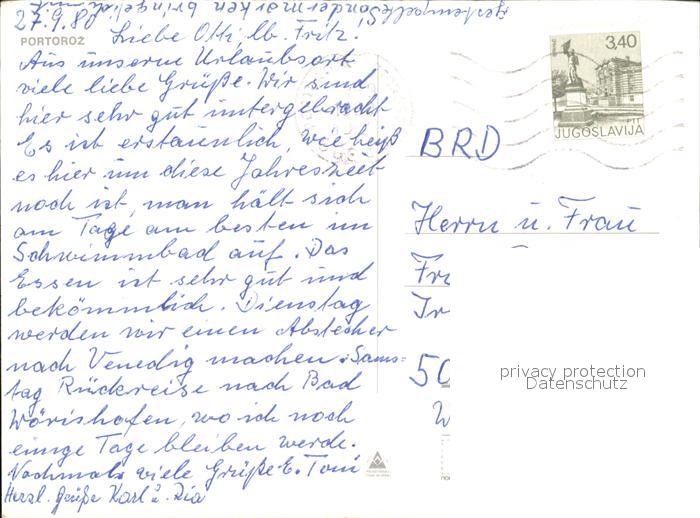 gestempelte Sondermarken bringe ich
27.9.80
PORTOROŽ
Liebe Otti, lb. Fritz.
Aus unserm Urlaubsort
viele liebe Grüße. Wir sind
hier sehr gut untergebracht
Es ist erstaunlich, wie heiß
es hier um diese Jahreszeit
noch ist, man hält sich
am Tage am besten im
Schwimmbad auf. Das
Essen ist sehr gut und
bekömmlich. Dienstag
werden wir einen Abstecher
nach Venedig machen. Sams=
tag Rückreise nach Bad
Wörishofen, wo ich noch
einige Tage bleiben werde.
Nochmals viele Grüße E. Toni
Herzl. Grüße Karl u. Ria
3,40
PTT
JUGOSLAVIJA
BRD
Herrn u. Frau
Fr
Ir
50
W
privacy protection
Datenschutz